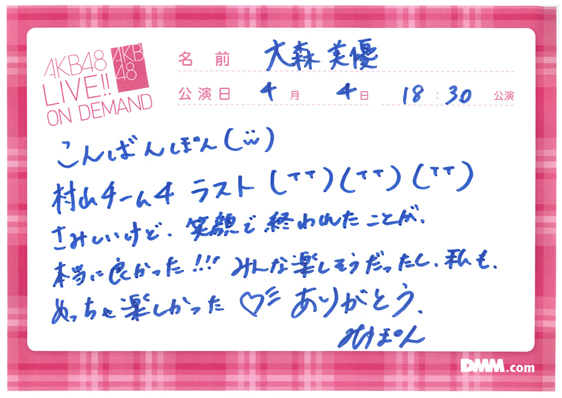 AKB48
LIVE!!
ON DEMAND
AKB
48
名前 大森美優
公演日 4月 4日 18:30 公演
こんばんぽん(ü)
村山チーム4 ラスト (TT)(TT)(TT)
さみしいけど、笑顔で終われたことが、
本当に良かった!!! みんな楽しそうだったし、私も、
めっちゃ楽しかった♡ ありがとう、
みゆぽん
DMM.com